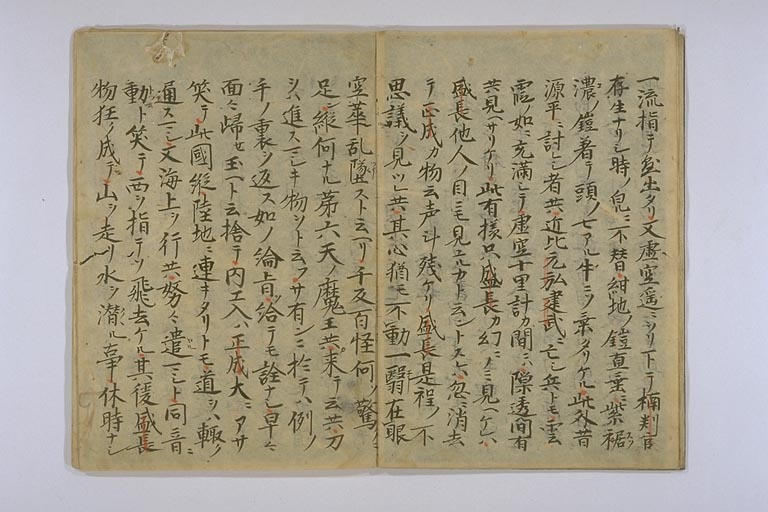 一流指テ出タリ又虚空遥ニソリ下テ楠判官
存生ナリシ時ノ皃ニ不替紺地ノ鎧直垂ニ紫裾
濃ノ鎧着テ頭ノ七アル牛ニソ乗タリケル此外昔
源平ニ討レシ者共近比元弘建武ニ亡シ兵トモ雲
霞如ニ充満シテ虚空十里計カ間ニハ隙透間有
共見ヘサリケリ此有様只盛長カ幻ニノミ見ヘケレハ
盛長他人ノ目ニモ見エルカト云ントスレハ忽ニ消去
テ正成カ物云声斗残ケリ盛長是程ノ不
思議ヲ見ツレ共其心猶モ不動一翳在眼
空華乱墜スト云リ千反百怪何ソ驚ニ
足ン縦何ナル第六天ノ魔王共来テ云共刀
ヲハ進スマシキ物ソト云フサ有ンニ於テハ例ノ
手ノ裏ヲ返ス如ノ綸旨給テモ詮ナシ早々
面々歸セ玉ヘト云捨テ内エ入ハ正成大ニアサ
笑テ此國縦陸地ニ連キタリトモ道ヲハ輙ク
通スマシ又海上ヲ行共努々遣マシト同音ニ
動ト笑テ西ヲ指テソ飛去ケル其後盛長
物狂ニ成テ山ヲ走リ水ヲ潜ル事休時ナシ